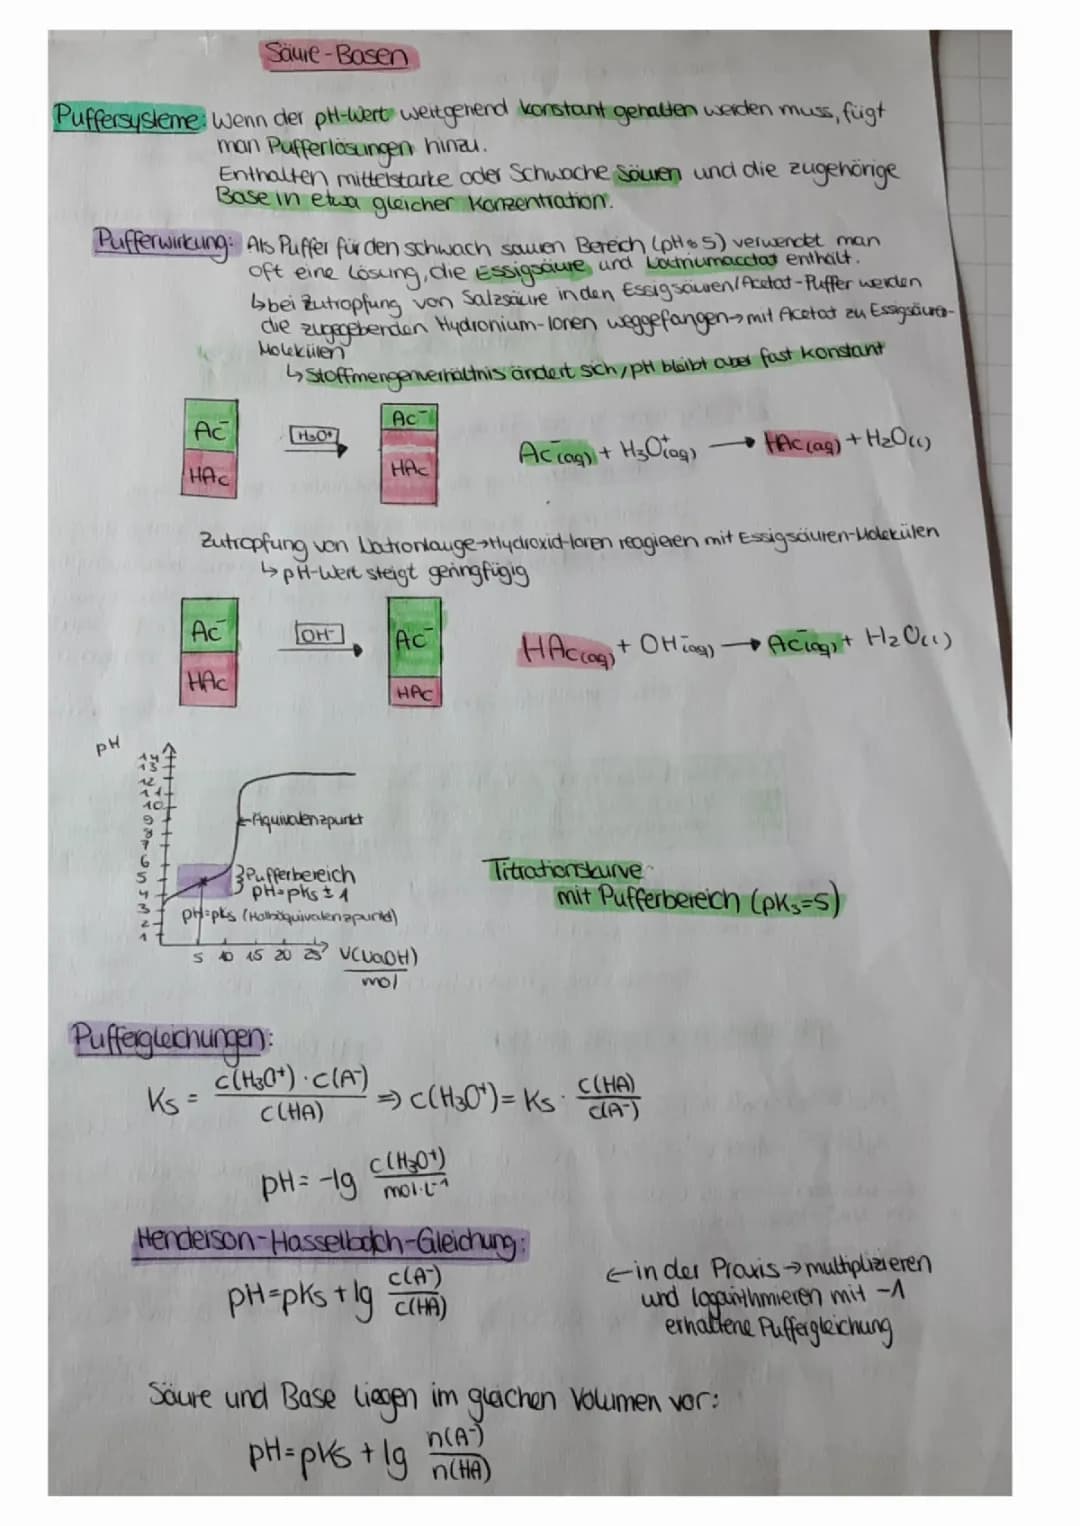 Säure-Basen
Puffersysteme: Wenn der pH-Wert weitgehend konstant gehalten werden muss, fügt
man Pufferlösungen hinzu.
Enthalten mittelstarke oder Schwache Säuren und die zugehörige
Base in etwa gleicher Konzentration.
Pufferwirkung: Als Puffer für den schwach sauren Bereich (pH≈5) verwendet man
oft eine Lösung, die Essigsäure und Natriumacetat enthält.
↳ bei Zutropfung von Salzsäure in den Essigsäuren/Acetat-Puffer werden
die zugegebenden Hydronium-Ionen weggefangen → mit Acetat zu Essigsäure-
Molekülen
↳ Stoffmengenverhältnis ändert sich, pH bleibt aber fast konstant
Ac⁻ H₃O⁺ Ac⁻
HAc HAc
Ac⁻(aq) + H₃O⁺(aq) → HAc(aq) + H₂O(l)
Zutropfung von Natronlauge → Hydroxid-Ionen reagieren mit Essigsäuren-Molekülen
↳ pH-Wert steigt geringfügig
Ac⁻ OH⁻ Ac⁻
HAc HAc
HAc(aq) + OH⁻(aq) → Ac⁻(aq) + H₂O(l)
pH
14
13
12
11
10
9
8
7
6
5
4
3
2
1
Äquivalenzpunkt
Pufferbereich
pH=pKs ± 1
pH=pKs (Halbäquivalenzpunkt)
5 10 15 20 25 V(NaOH)
mol
Titrationskurve
mit Pufferbereich (pKs=5)
Puffergleichungen:
Ks = c(H₃O⁺)·c(A⁻) / c(HA) ⇒ c(H₃O⁺) = Ks · c(HA) / c(A⁻)
pH = -lg c(H₃O⁺) / mol·L⁻¹
Henderson-Hasselbalch-Gleichung:
pH=pKs + lg c(A⁻) / c(HA)
← in der Praxis → multiplizieren
und logarithmieren mit -1
erhaltene Puffergleichung
Säure und Base liegen im gleichen Volumen vor:
pH=pKs + lg n(A⁻) / n(HA)